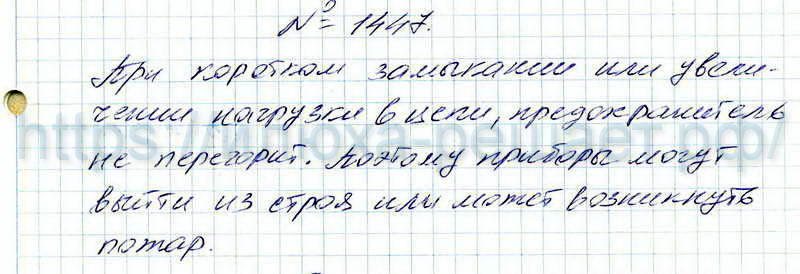 № 1447.
При коротком замыкании или увели-
чении нагрузки в цепи, предохранитель
не перегорит. Поэтому приборы могут
выйти из строя или может возникнуть
пожар.